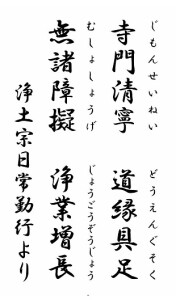 じもんせいねい　どうえんぐそく
寺門清寧　道縁具足
むしょしょうげ　じょうごうぞうじょう
無諸障擬　浄業増長
浄土宗日常勤行より